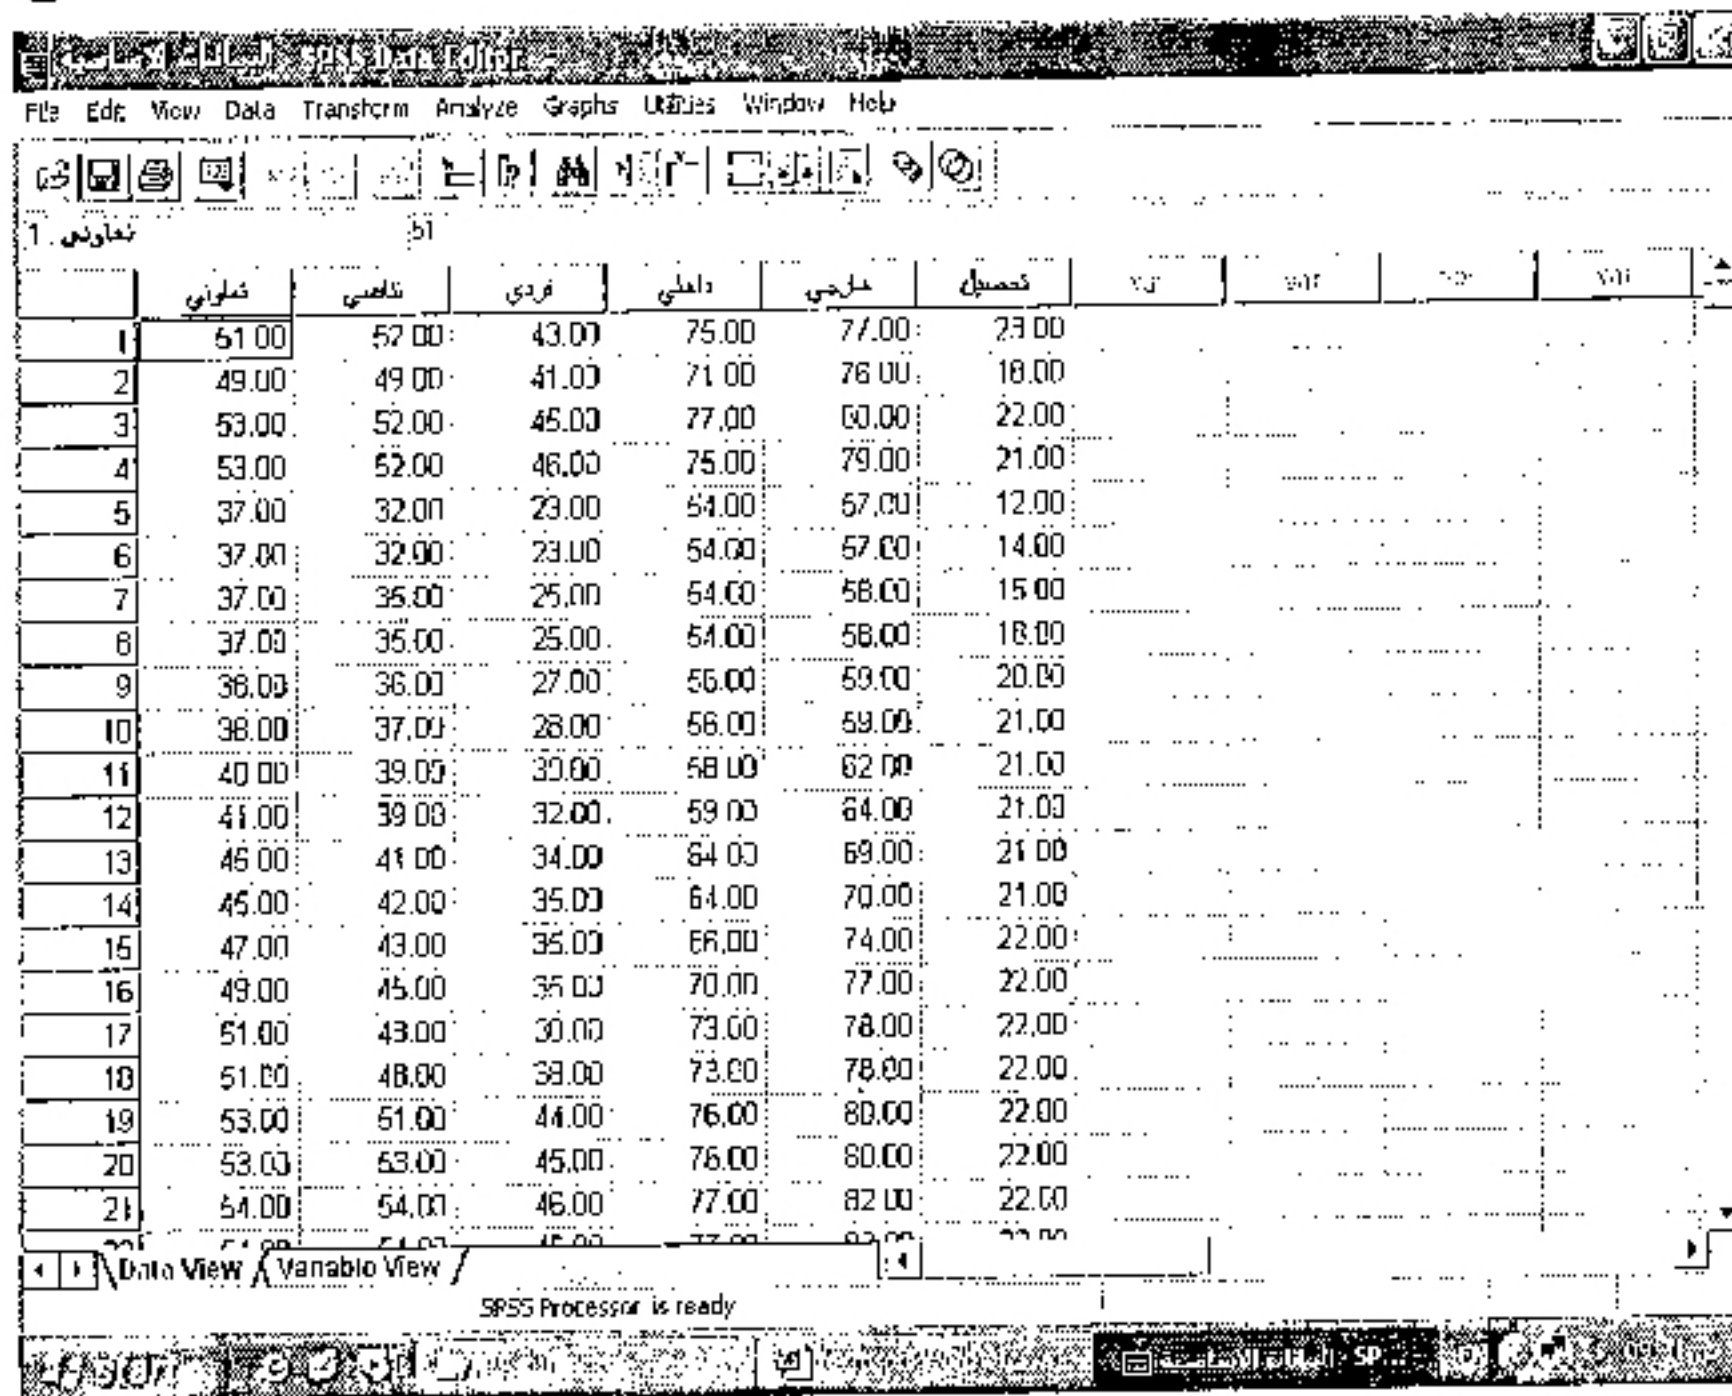 البيانات الاساسية - SPSS Data Editor
File Edit View Data Transform Analyze Graphs Utilities Window Help
1 : تعاوني 51
تعاوني تنافسي فردي داخلي خارجي تحصيل var var var var
1 51.00 52.00 43.00 75.00 77.00 23.00
2 49.00 49.00 41.00 71.00 76.00 18.00
3 53.00 52.00 45.00 77.00 80.00 22.00
4 53.00 52.00 46.00 75.00 79.00 21.00
5 37.00 32.00 23.00 54.00 57.00 12.00
6 37.00 32.00 23.00 54.00 57.00 14.00
7 37.00 35.00 25.00 54.00 58.00 15.00
8 37.00 35.00 25.00 54.00 58.00 18.00
9 38.00 36.00 27.00 56.00 59.00 20.00
10 38.00 37.00 28.00 56.00 59.00 21.00
11 40.00 39.00 30.00 58.00 62.00 21.00
12 41.00 39.00 32.00 59.00 64.00 21.00
13 45.00 41.00 34.00 64.00 69.00 21.00
14 45.00 42.00 35.00 64.00 70.00 21.00
15 47.00 43.00 35.00 66.00 74.00 22.00
16 49.00 45.00 35.00 70.00 77.00 22.00
17 51.00 73.00 78.00 22.00
18 51.00 48.00 38.00 73.00 78.00 22.00
19 53.00 51.00 44.00 76.00 80.00 22.00
20 53.00 53.00 45.00 76.00 80.00 22.00
21 54.00 54.00 46.00 77.00 82.00 22.00
Data View Variable View
SPSS Processor is ready